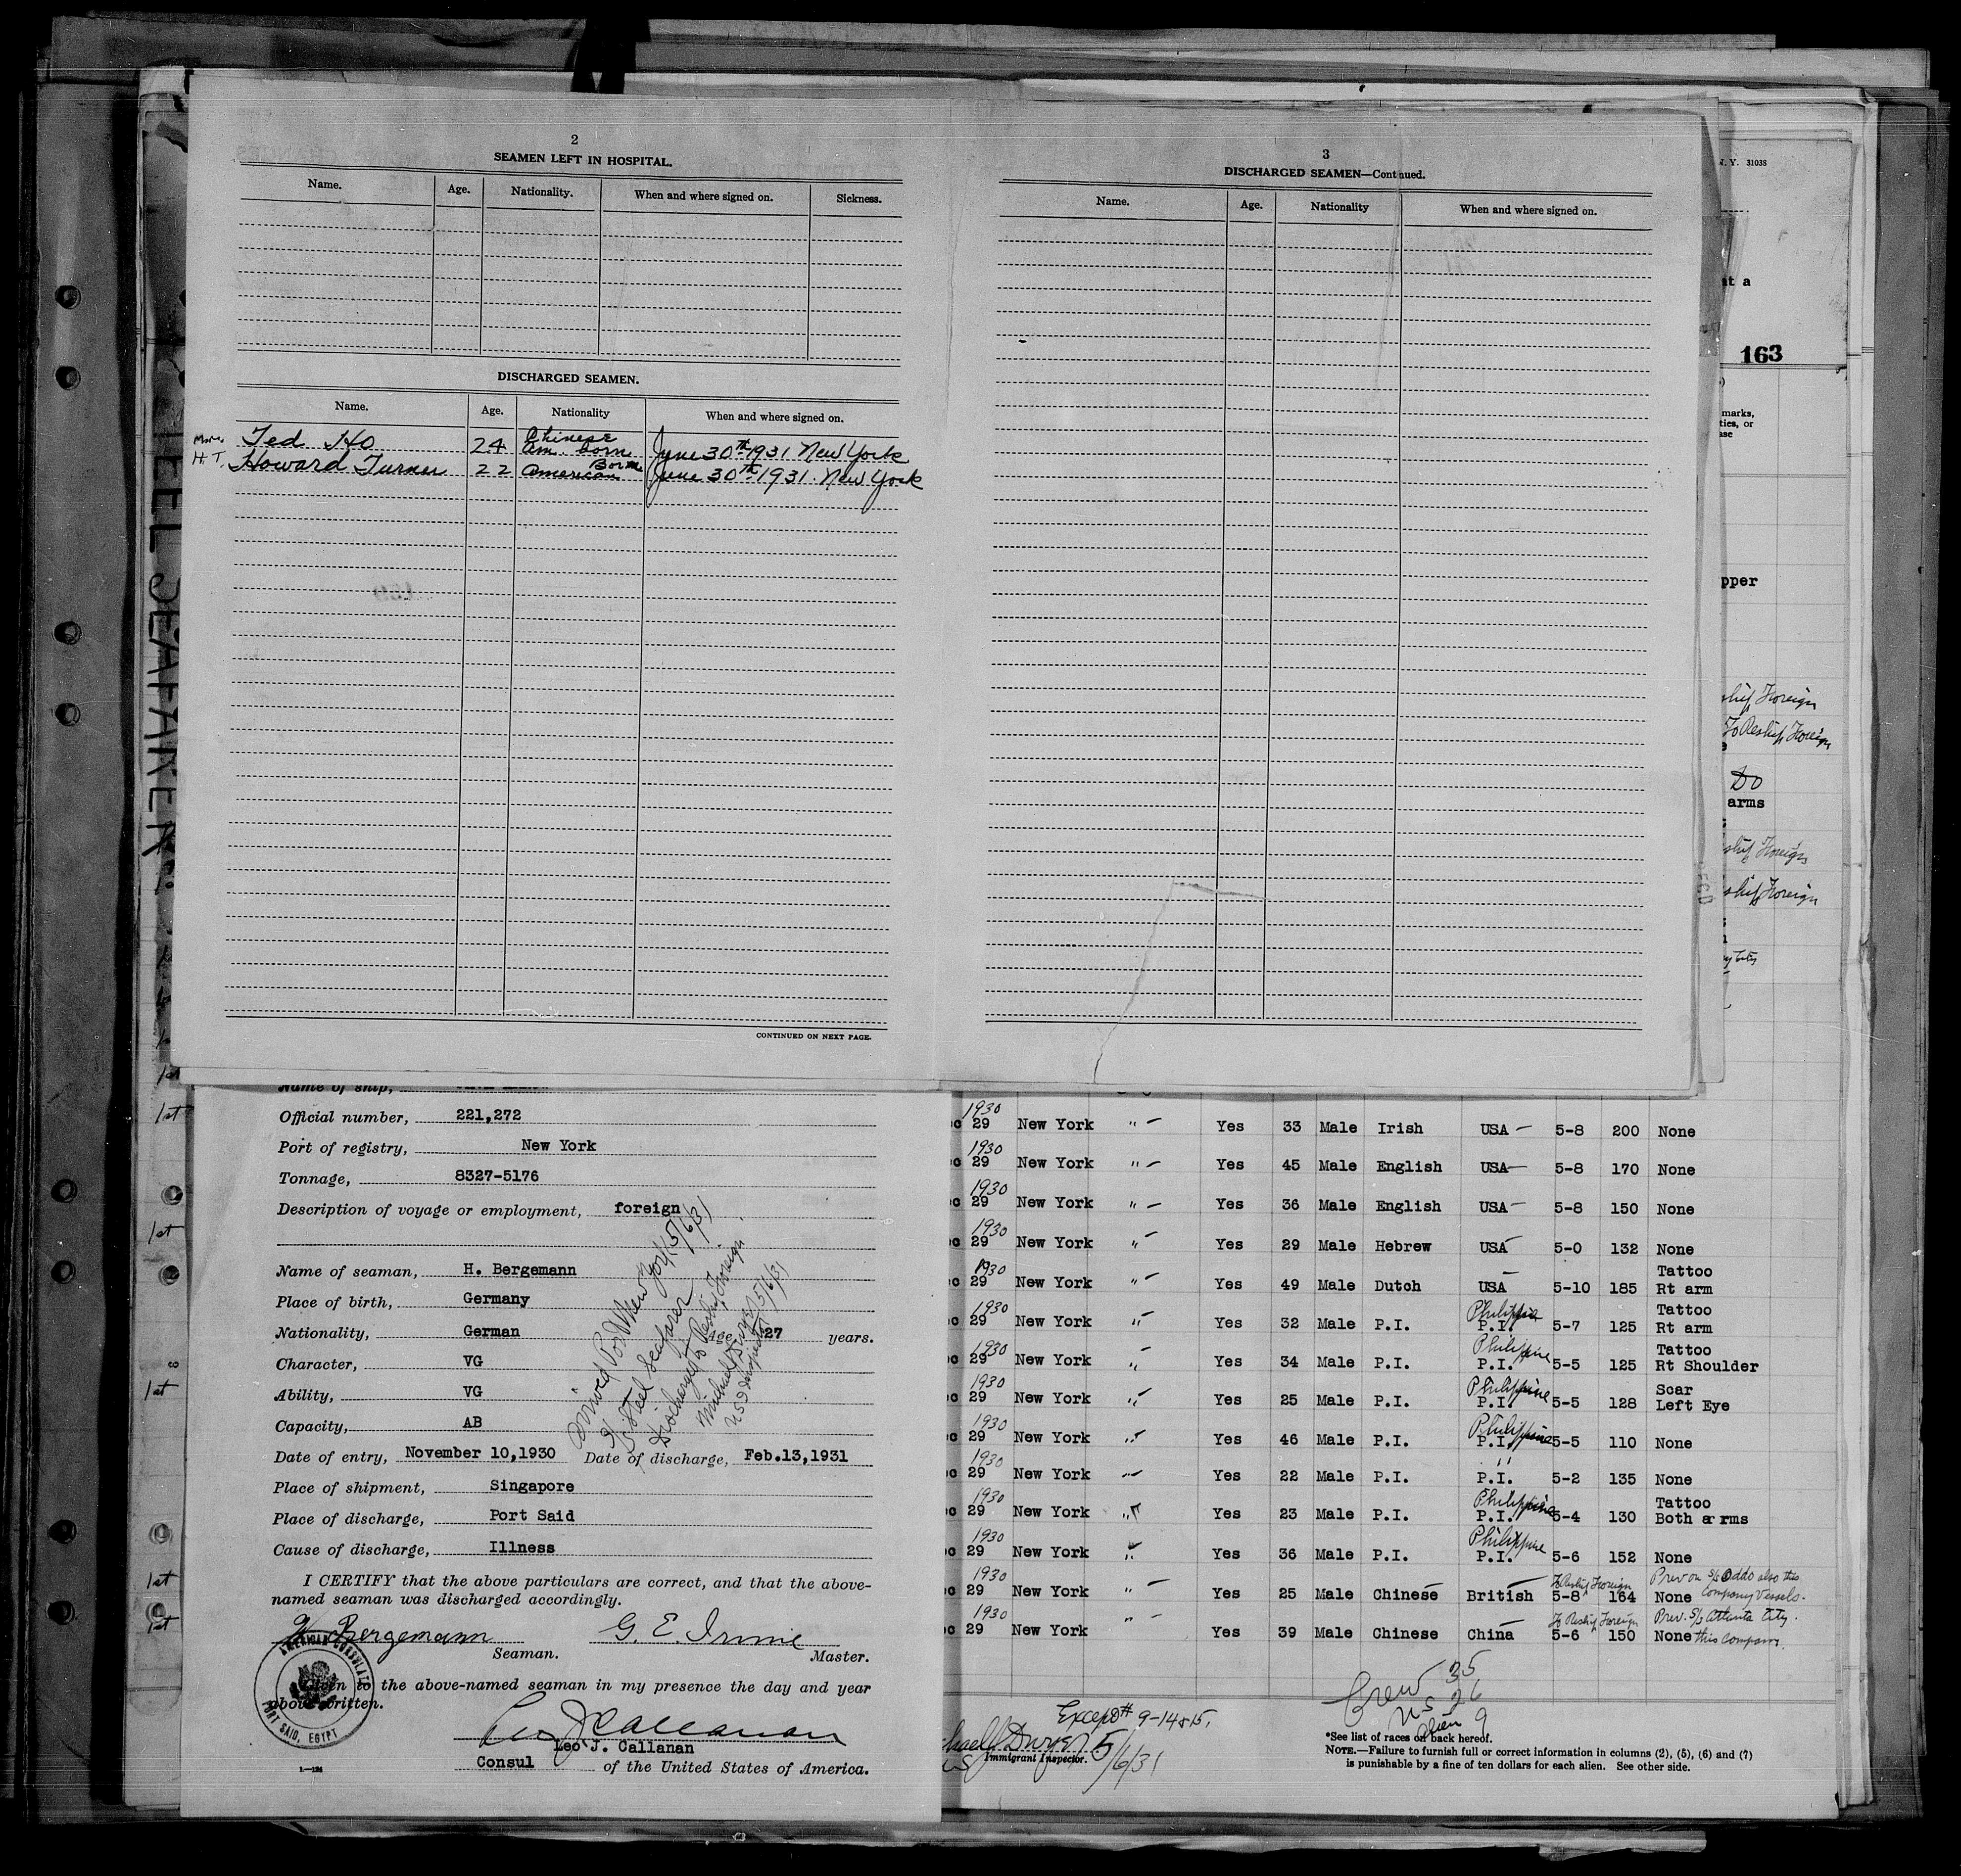 2
SEAMEN LEFT IN HOSPITAL.
Name. Age. Nationality. When and where signed on. Sickness.
DISCHARGED SEAMEN.
Name. Age. Nationality When and where signed on.
Ted Ho 24 Chinese Am. born June 30th 1931 New York
H.T. Howard Turner 22 American Born June 30th 1931. New York
CONTINUED ON NEXT PAGE.
3
DISCHARGED SEAMEN—Continued.
Name. Age. Nationality When and where signed on.
N. Y. 31038
at a
163
marks,
ties, or
pper
ship Foreign
To Reship Foreign
Do
arms
ship Foreign
ship Foreign
STEEL SEAFARER
1st
1st
1st
1st
1st
Name of ship,
Official number, 221,272
Port of registry, New York
Tonnage, 8327-5176
Description of voyage or employment, foreign
Name of seaman, H. Bergemann
Place of birth, Germany
Nationality, German age 27 years.
Character, VG
Ability, VG
Capacity, AB
Date of entry, November 10,1930 Date of discharge, Feb.13,1931
Place of shipment, Singapore
Place of discharge, Port Said
Cause of discharge, Illness
I CERTIFY that the above particulars are correct, and that the above-
named seaman was discharged accordingly.
H. Bergemann G. E. Irvine
Seaman. Master.
Given to the above-named seaman in my presence the day and year
above written.
Leo J. Callanan
Leo J. Callanan
Consul of the United States of America.
1—124
AMERICAN CONSULATE
PORT SAID, EGYPT
Arrived Port New York 5/6/31
S/S Steel Seafarer
Discharged to Reship Foreign.
Michael J Dwyer 5/6/31
US Inspector
1930
29 New York " Yes 33 Male Irish USA 5-8 200 None
1930
29 New York " Yes 45 Male English USA 5-8 170 None
1930
29 New York " Yes 36 Male English USA 5-8 150 None
1930
29 New York " Yes 29 Male Hebrew USA 5-0 132 None
1930
29 New York " Yes 49 Male Dutch USA 5-10 185 Tattoo Rt arm
1930
29 New York " Yes 32 Male P.I. Philippine P.I. 5-7 125 Tattoo Rt arm
1930
29 New York " Yes 34 Male P.I. Philippine P.I. 5-5 125 Tattoo Rt Shoulder
1930
29 New York " Yes 25 Male P.I. Philippine P.I. 5-5 128 Scar Left Eye
1930
29 New York " Yes 46 Male P.I. Philippine P.I. 5-5 110 None
1930
29 New York " Yes 22 Male P.I. " P.I. 5-2 135 None
1930
29 New York " Yes 23 Male P.I. Philippine P.I. 5-4 130 Tattoo Both arms
1930
29 New York " Yes 36 Male P.I. Philippine P.I. 5-6 152 None
1930 To Reship Foreign Prev on S/S Oddo also this
29 New York " Yes 25 Male Chinese British 5-8 164 None Company Vessels.
1930 To Reship Foreign Prev. S/S Atlanta City.
29 New York " Yes 39 Male Chinese China 5-6 150 None this Company.
Crew 35
US 26
Alien 9
Except # 9-14&15.
Michael J Dwyer 5/6/31
Immigrant Inspector.
*See list of races on back hereof.
NOTE.—Failure to furnish full or correct information in columns (2), (5), (6) and (7)
is punishable by a fine of ten dollars for each alien. See other side.